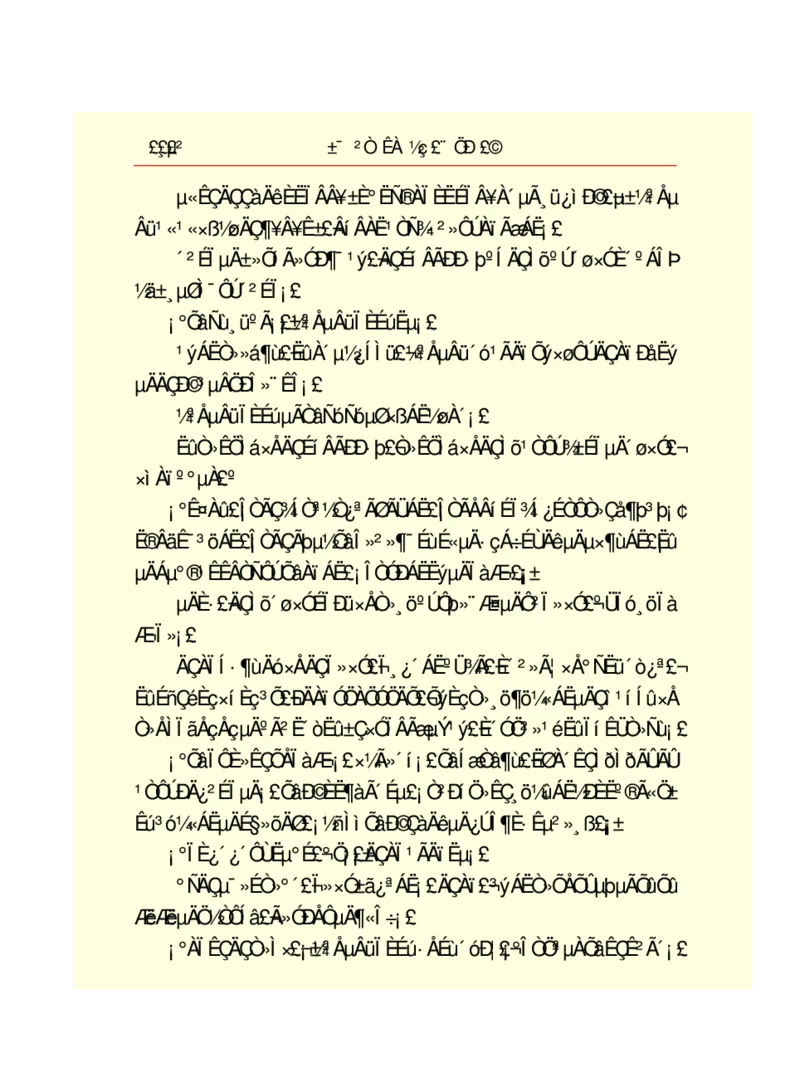 ££ǵ² ±¯ ²Ò ÊÀ ½ç £¨ ÖÐ £©
µ«ÊÇÄÇÇàÄêÈËÏÂÂ¥±È°ËÑ®ÀÏÈËÉÏÂ¥À´µÃ¸ü¿ìÐ©£¡µ±½ªÅµ
Âü¹«¹«×ß½øÄÇ¶¥Â¥Ê±£¬ÂíÂÀË¹ÒÑ¾­²»ÔÚÀïÃæÁË¡£
´²ÉÏµÄ±»ÕíÃ»ÓÐ¶¯¹ý£¬ÄÇÉíÂÃÐÐ·þºÍÄÇÌõºÚ´ø×ÓÈ´ºÁÎÞ
½ä±¸µØÌ¯ÔÚ´²ÉÏ¡£
¡°ÕâÑù¸üºÃ¡£±½ªÅµÂüÏÈÉúËµ¡£
¹ýÁËÒ»»á¶ù£¬ËûÀ´µ½¿ÍÌü£¬½ªÅµÂü´ó¹ÃÄïÕý×øÔÚÄÇÀïÐåËý
µÄÄÇÐ©³µÂÖÐÎ»¨ÊÎ¡£
½ªÅµÂüÏÈÉúµÃÒâÑóÑóµØ×ßÁË½øÀ´¡£
ËûÒ»ÊÖÌá×ÅÄÇÉíÂÃÐÐ·þ£¬Ò»ÊÖÌá×ÅÄÇÌõ¹ÒÔÚ¾±ÉÏµÄ´ø×Ó£¬
×ìÀïº°µÀ£º
¡°Ê¤Àû£¡ÎÒÃÇ¾ÍÒª½Ò¿ªÃØÃÜÁË£¡ÎÒÃÅÂíÉÏ¾Í¿ÉÒÔÒ»Çå¶þ³þ¡¢
Ë®ÂäÊ¯³öÁË£¡ÎÒÃÇÃþµ½ÕâÎ»²»¶¯ÉùÉ«µÄ·çÁ÷ÉÙÄêµÄµ×¶ùÁË£¡Ëû
µÄÁµ°®¹ÊÊÂÒÑÔÚÕâÀïÁË£¡ÎÒÓÐÁËËýµÄÏàÆ¬£¡±
µÄÈ·£¬ÄÇÌõ´ø×ÓÉÏÐü×ÅÒ»¸öºÚÔ­þ»¨Æ¤µÄÔ²Ï»×Ó£¬ºÜÏó¸öÏà
Æ¬Ï»¡£
ÄÇÀÏÍ·¶ùÄó×ÅÄÇÏ»×Ó£¬Ï¸¿´ÁËºÜ¾Ã£¬È´²»Ã¦×Å°ÑËü´ò¿ª£¬
ËûÉñÇéÈç×íÈç³Õ£¬ÐÄÀïÓÖÀÖÓÖÄÕ£¬ÕýÈçÒ»¸ö¶ö¼«ÁËµÄÇî¹íÍû×Å
Ò»ÅÌÏãÅçÅçµÄºÃ²Ë´òËû±Ç×ÓÏÂÃæµÝ¹ý£¬È´ÓÖ²»¹éËûÏíÊÜÒ»Ñù¡£
¡°ÕâÏÔÈ»ÊÇÕÅÏàÆ¬¡£×¼Ã»´í¡£ÕâÍæÒâ¶ù£¬ËØÀ´ÊÇÌðÌðÃÛÃÛ
¹ÒÔÚÐÄ¿²ÉÏµÄ¡£ÕâÐ©ÈË¶àÃ´Éµ£¡Ò²ÐíÖ»ÊÇ¸ö¼ûÁË½ÐÈËº®Ã«Ö±
Êú³ó¼«ÁËµÄÉ§»õÄØ£¡½ñÌìÕâÐ©ÇàÄêµÄ¿ÚÎ¶È·Êµ²»¸ß£¡±
¡°ÏÈ¿´¿´ÔÙËµ°É£¬º¸¡£±ÄÇÀÏ¹ÃÄïËµ¡£
°ÑÄÇµ¯»ÉÒ»°´£¬Ï»×Ó±ã¿ªÁË¡£ÄÇÀï£¬¾ýÁËÒ»ÕÅÕÛµþµÃÕûÕû
ÆëÆëµÄÖ½ÒÔÍâ£¬Ã»ÓÐÅÔµÄ¶«Î÷¡£
¡°ÀÏÊÇÄÇÒ»Ì×£¡±½ªÅµÂüÏÈÉú·ÅÉù´óÐ¦£¬¡ÎÒÖªµÀÕâÊÇÊ²Ã´¡£